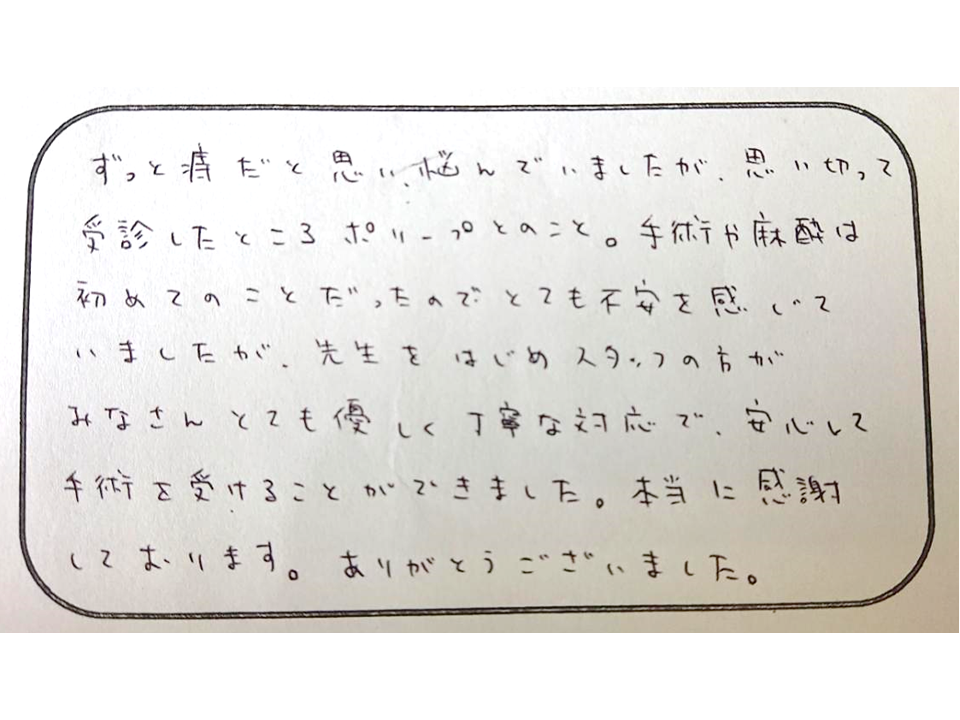 ずっと痔だと思い、悩んでいましたが、思い切って
受診したところポリープとのこと。手術や麻酔は
初めてのことだったのでとても不安を感じて
いましたが、先生をはじめスタッフの方が
みなさんとても優しく丁寧な対応で、安心して
手術を受けることができました。本当に感謝
しております。ありがとうございました。